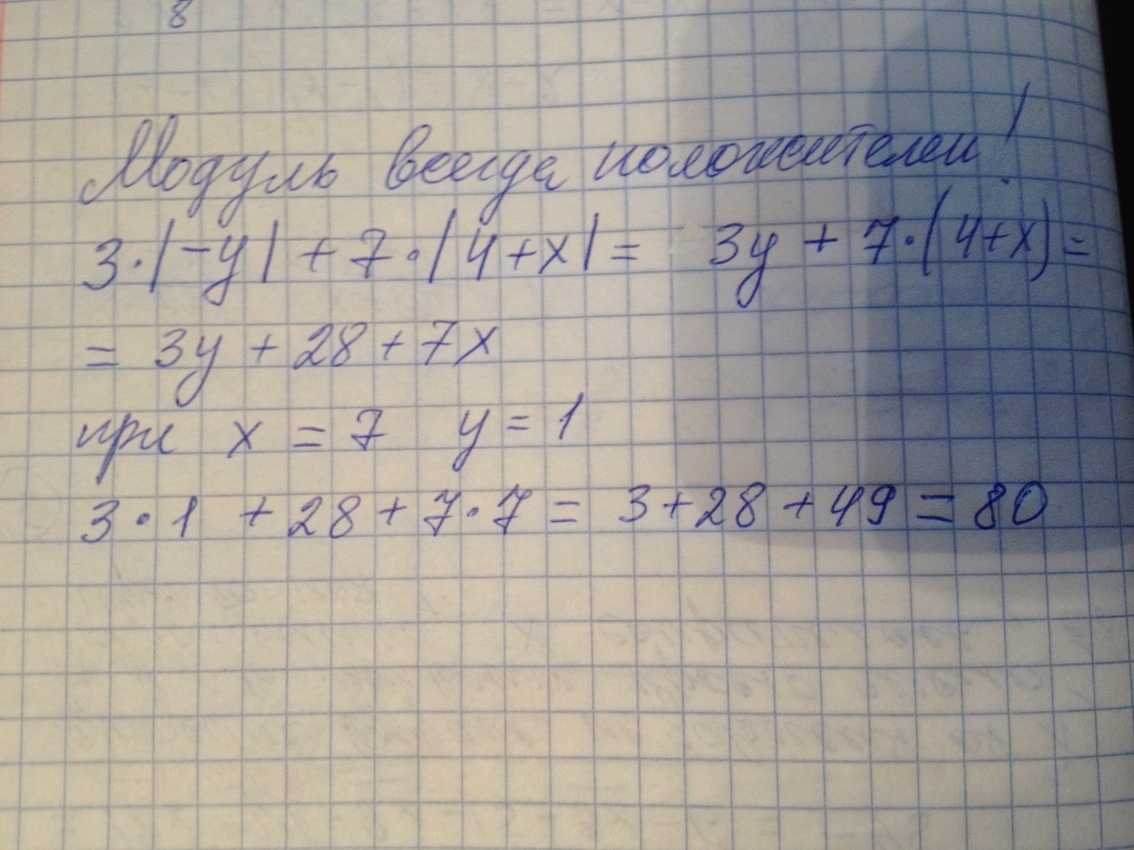 8
Модуль всегда положителен!
3·|-y| + 7·|4+x| = 3y + 7·(4+x) =
= 3y + 28 + 7x
при x = 7 y = 1
3·1 + 28 + 7·7 = 3+28+49 = 80